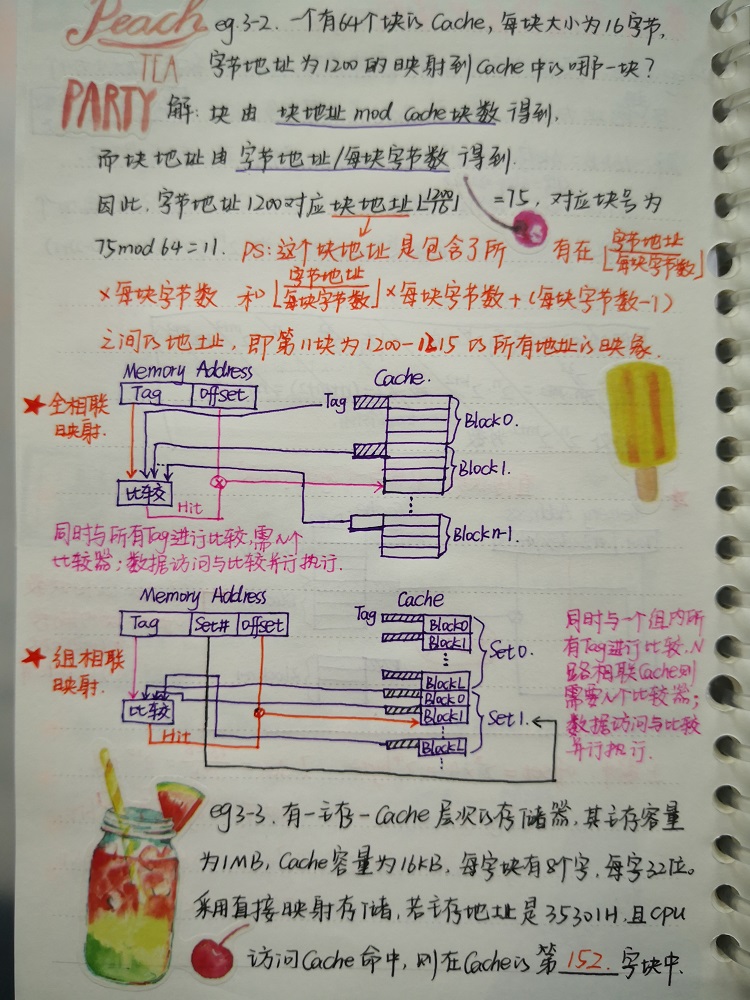 Peach
TEA
PARTY
eg.3-2. 一个有64个块的Cache, 每块大小为16字节,
字节地址为1200的映射到Cache中的哪一块?
解: 块由 块地址 mod Cache块数 得到.
而块地址由字节地址/每块字节数 得到.
因此, 字节地址1200对应块地址⌊1200/16⌋ =75, 对应块号为
75mod 64=11. PS:这个块地址是包含了所 有在⌊字节地址/每块字节数⌋
×每块字节数 和⌊字节地址/每块字节数⌋×每块字节数+(每块字节数-1)
之间的地址, 即第11块为1200-1215的所有地址的映象.
★全相联
映射.
Memory Address
Tag offset
Cache.
Tag
Block0.
Block1.
Blockn-1.
比较
Hit
同时与所有Tag进行比较,需N个
比较器;数据访问与比较并行执行.
★组相联
映射.
Memory Address
Tag Set# offset
Cache
Tag
Block0
Block1
BlockL
Set0.
Block0
Block1
BlockL
Set1.
比较
Hit
同时与一个组内所
有Tag进行比较.N
路相联Cache则
需要N个比较器;
数据访问与比较
并行执行.
eg3-3. 有一主存-Cache 层次的存储器, 其主存容量
为1MB, Cache容量为16KB, 每字块有8个字, 每字32位。
采用直接映射存储, 若主存地址是35301H, 且CPU
访问Cache命中, 则在Cache的第 152. 字块中.